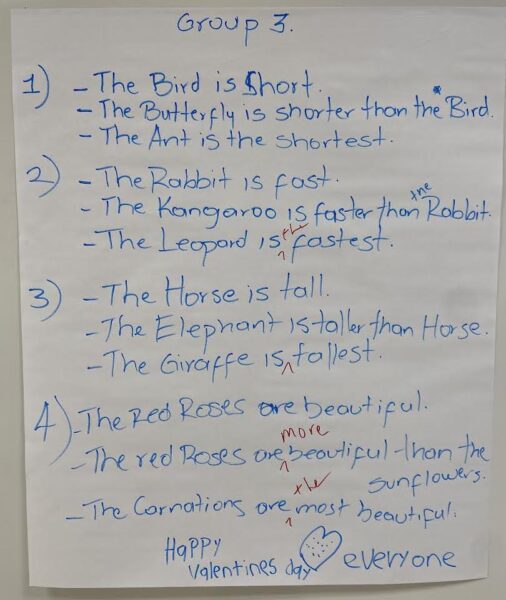 Group 3.
1) - The Bird is Short.
- The Butterfly is shorter than the Bird.
- The Ant is the shortest.
2) - The Rabbit is fast.
- The Kangaroo is faster than the Rabbit.
- The Leopard is the fastest.
3) - The Horse is tall.
- The Elephant is taller than Horse.
- The Giraffe is ^ tallest.
4) - The Red Roses are beautiful.
- The red Roses are more beautiful than the
sunflowers.
- The Carnations are the most beautiful.
Happy
Valentines day everyone